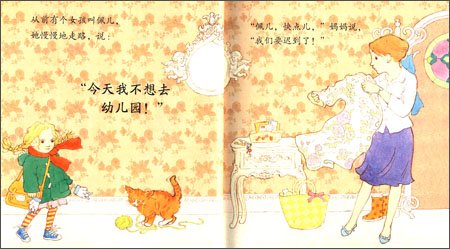 从前有个女孩叫佩儿，
她慢慢地走路，说：
“今天我不想去
幼儿园！”
“佩儿，快点儿，”妈妈说，
“我们要迟到了！”